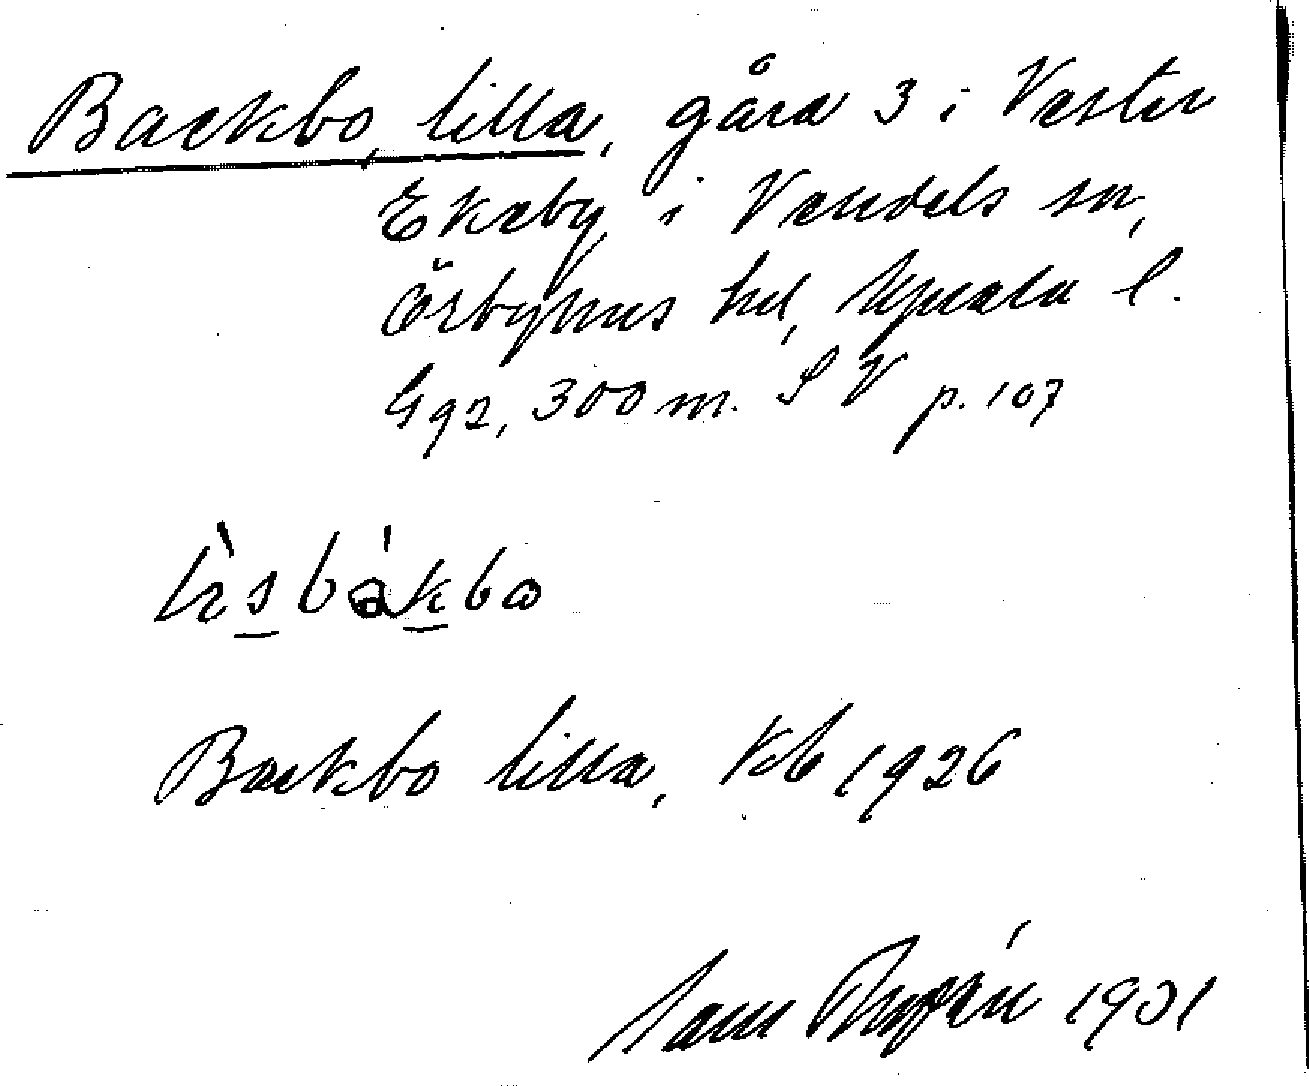 Backbo, lilla, gård 3 i Vester
Ekeby i Vendels sn,
Örbyhus hd, Upsala l.
Gg2, 300 m. S V p. 107
Backbo lilla, Kb 1926
1931